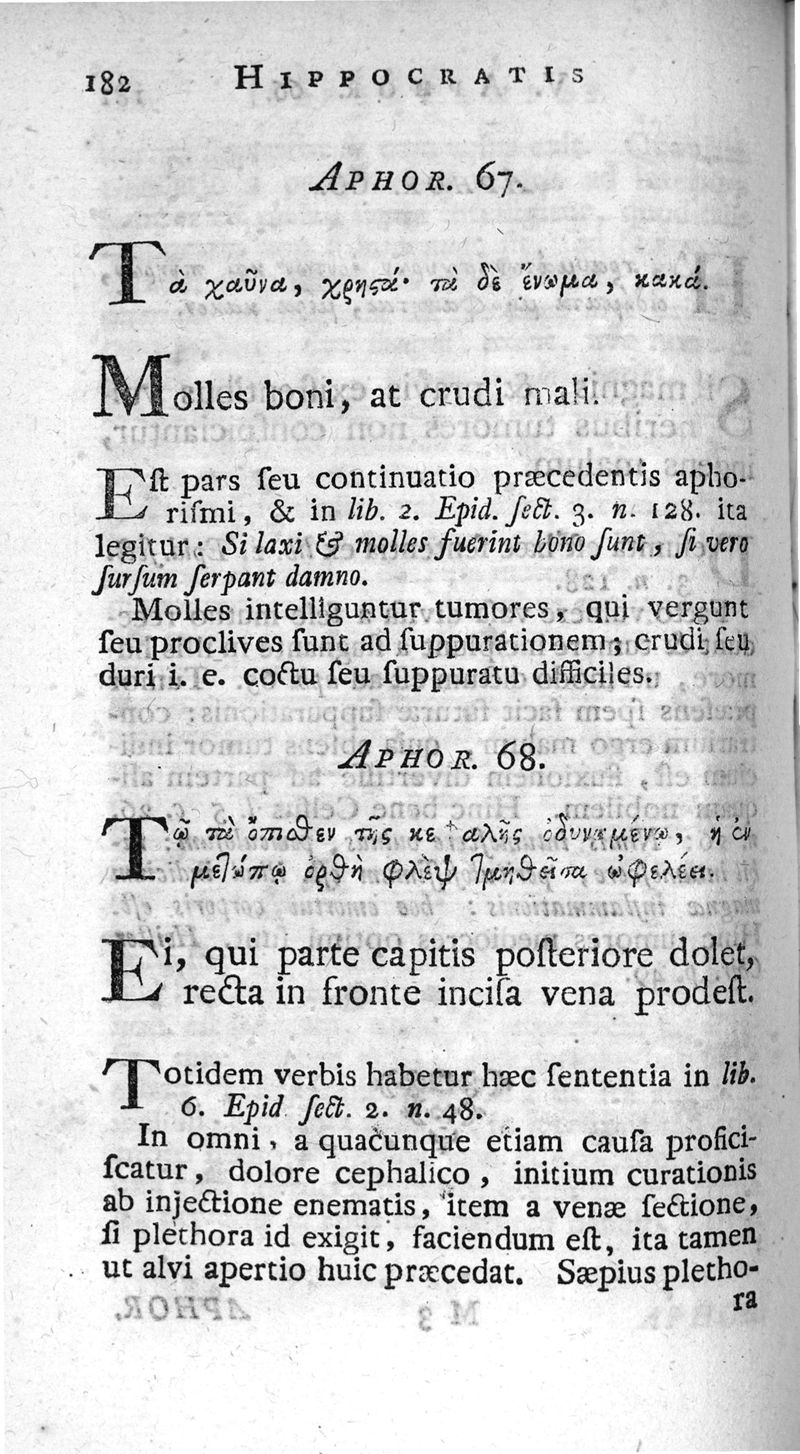 182 HIPPOCRATIS
APHOR. 67.
Τὰ χαῦνα, χρηστά· τὰ δὲ ἔνωμα, κακά.
Molles boni, at crudi mali.
Eſt pars ſeu continuatio præcedentis apho-
riſmi, & in lib. 2. Epid. ſect. 3. n. 128. ita
legitur: Si laxi & molles fuerint bono ſunt, ſi vero
ſurſum ſerpant damno.
Molles intelliguntur tumores, qui vergunt
ſeu proclives ſunt ad ſuppurationem; crudi ſeu
duri i. e. coctu ſeu ſuppuratu difficiles.
APHOR. 68.
Τῷ τὰ ὄπισθεν τῆς κεφαλῆς ὀδυνωμένῳ, ἡ ἐν
μετώπῳ ὀρθὴ φλὲψ τμηθεῖσα ὠφελέει.
Ei, qui parte capitis poſteriore dolet,
recta in fronte inciſa vena prodeſt.
Totidem verbis habetur hæc ſententia in lib.
6. Epid ſect. 2. n. 48.
In omni, a quacunque etiam cauſa profici-
ſcatur, dolore cephalico, initium curationis
ab injectione enematis, item a venæ ſectione,
ſi plethora id exigit, faciendum eſt, ita tamen
ut alvi apertio huic præcedat. Sæpius pletho-
ra